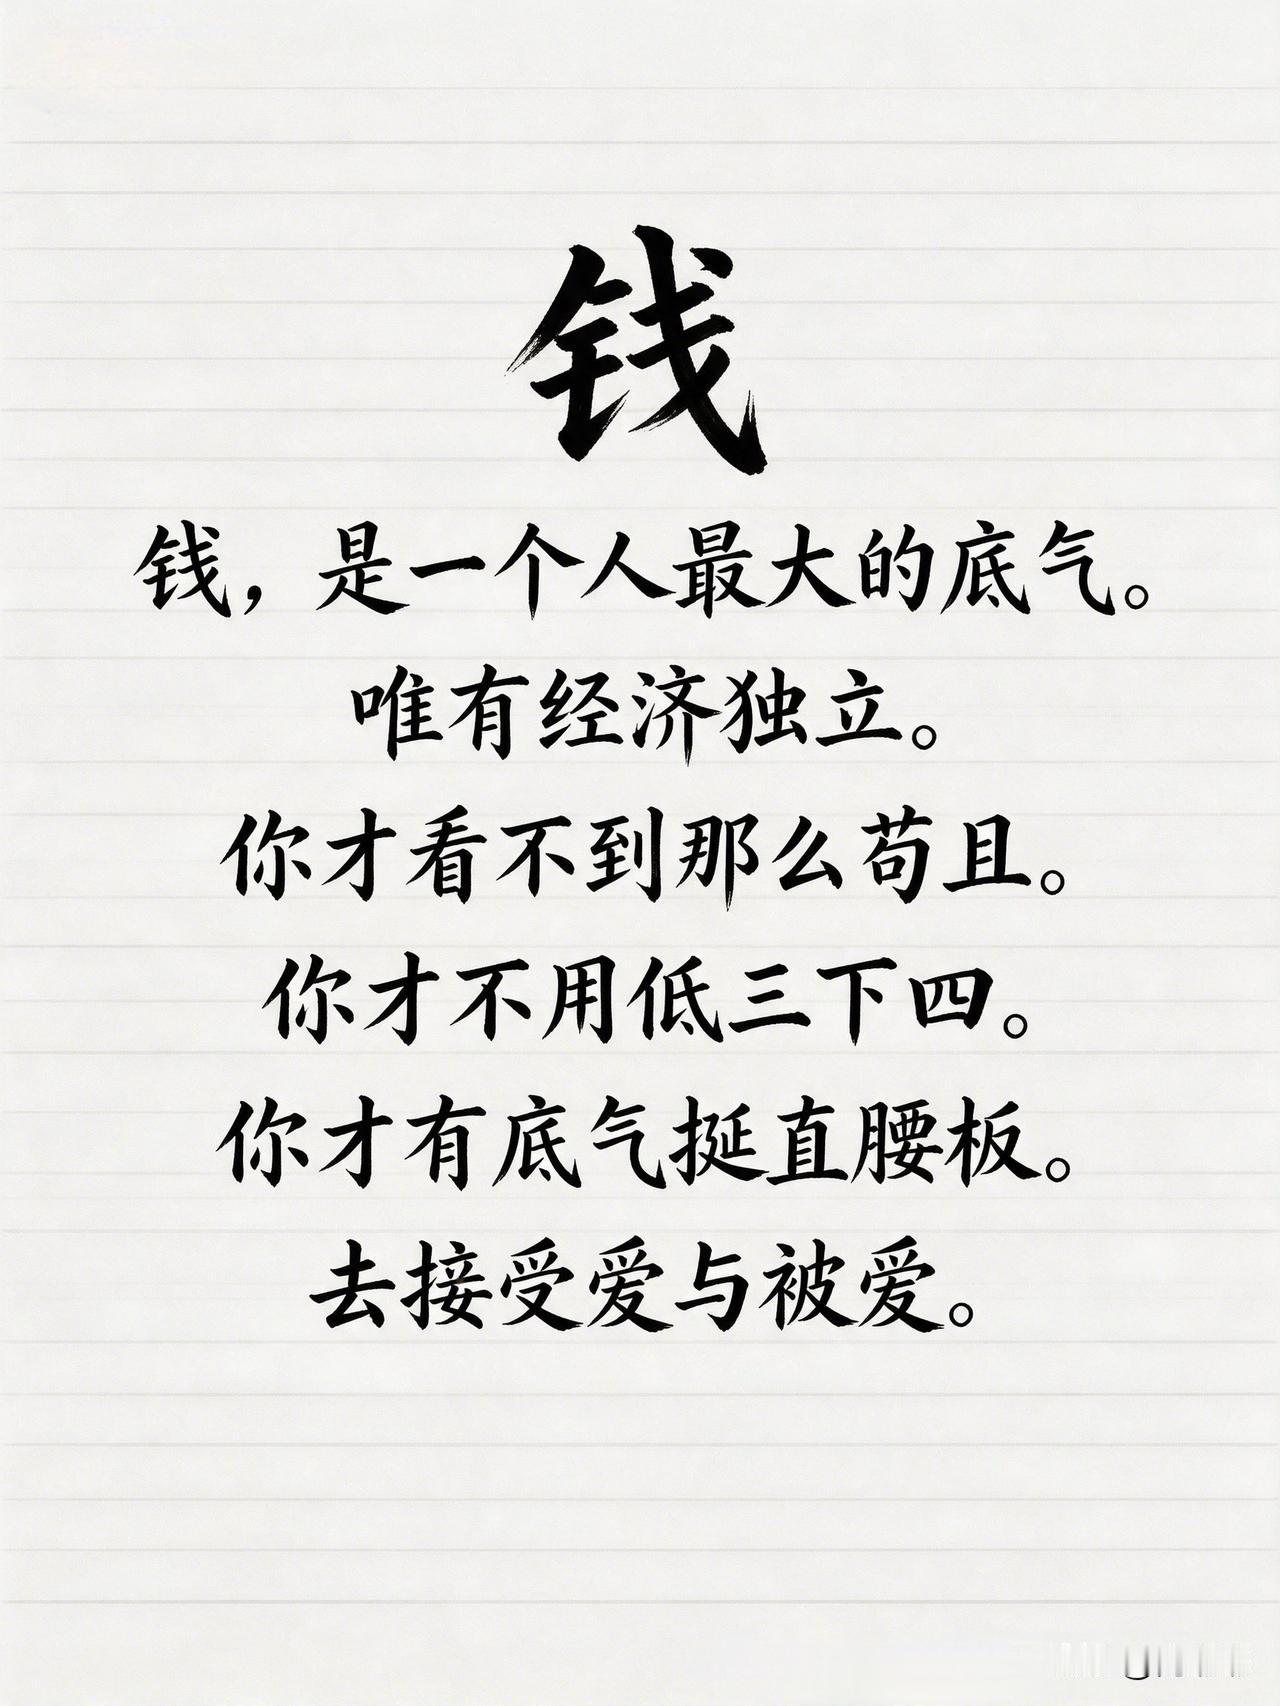 钱
钱，是一个人最大的底气。
唯有经济独立。
你才看不到那么苟且。
你才不用低三下四。
你才有底气挺直腰板。
去接受爱与被爱。